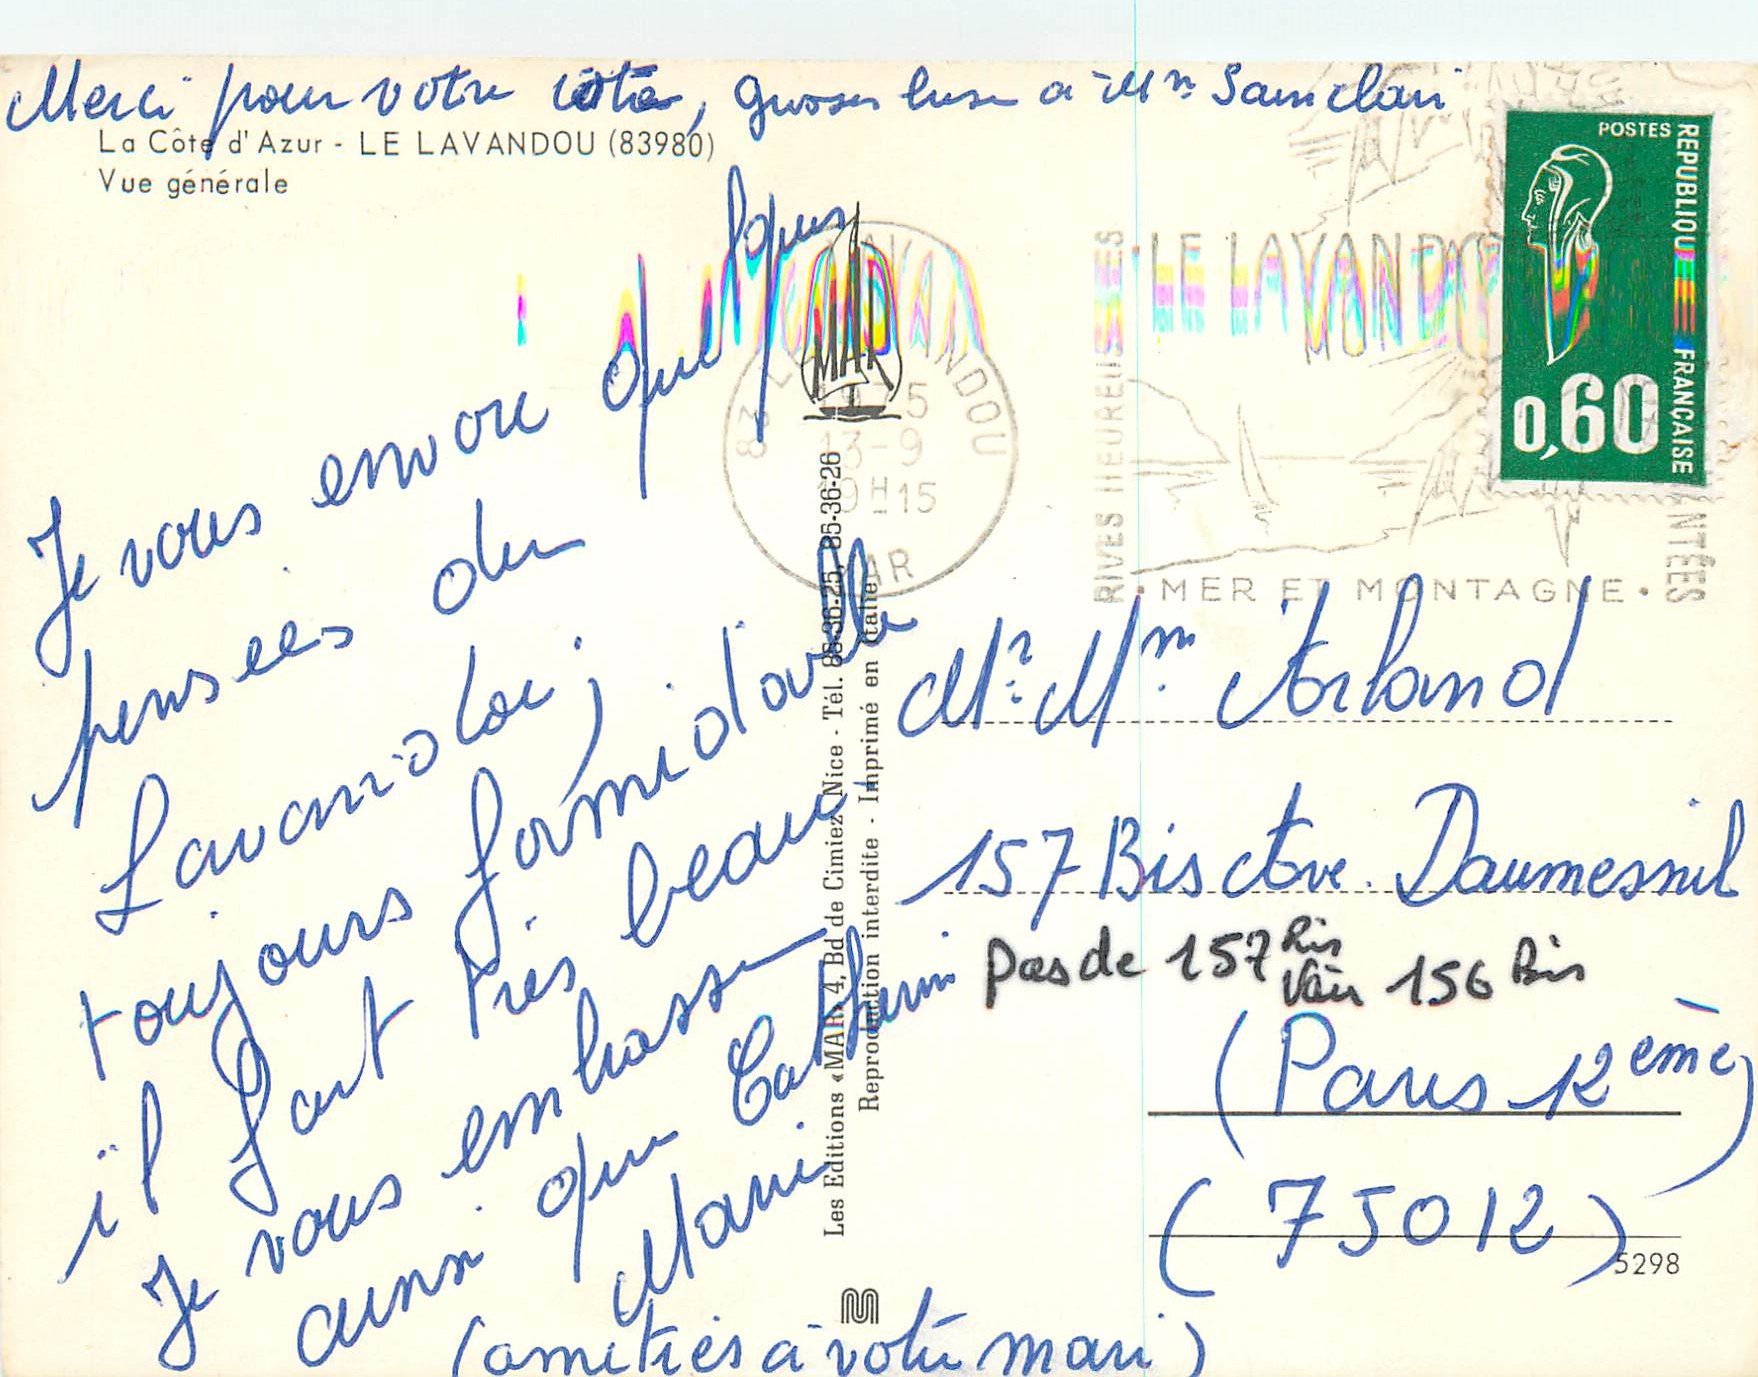 Merci pour votre carte, grosses bises à Mr Sainclair
La Côte d'Azur - LE LAVANDOU (83980)
Vue générale
Je vous envoie quelques
pensées du
Lavandou,
toujours formidable
il fait très beau.
Je vous embrasse
ainsi que Catherine
Marie
(amitiés à votre mari)
MAR
Les Editions «MAR» 4, Bd de Cimiez Nice - Tél. 85-36-25, 85-36-26
Reproduction interdite - Imprimé en Italie
83 LE LAVANDOU
13-9
19H15
VAR
RIVES HEUREUSES
LE LAVANDOU
MER ET MONTAGNE
POSTES
REPUBLIQUE FRANÇAISE
0,60
Mr. Mme Arland
157 Bis Ave. Daumesnil
pas de 157 Bis
Voir 156 Bis
(Paris 12ème)
(75012)
5298